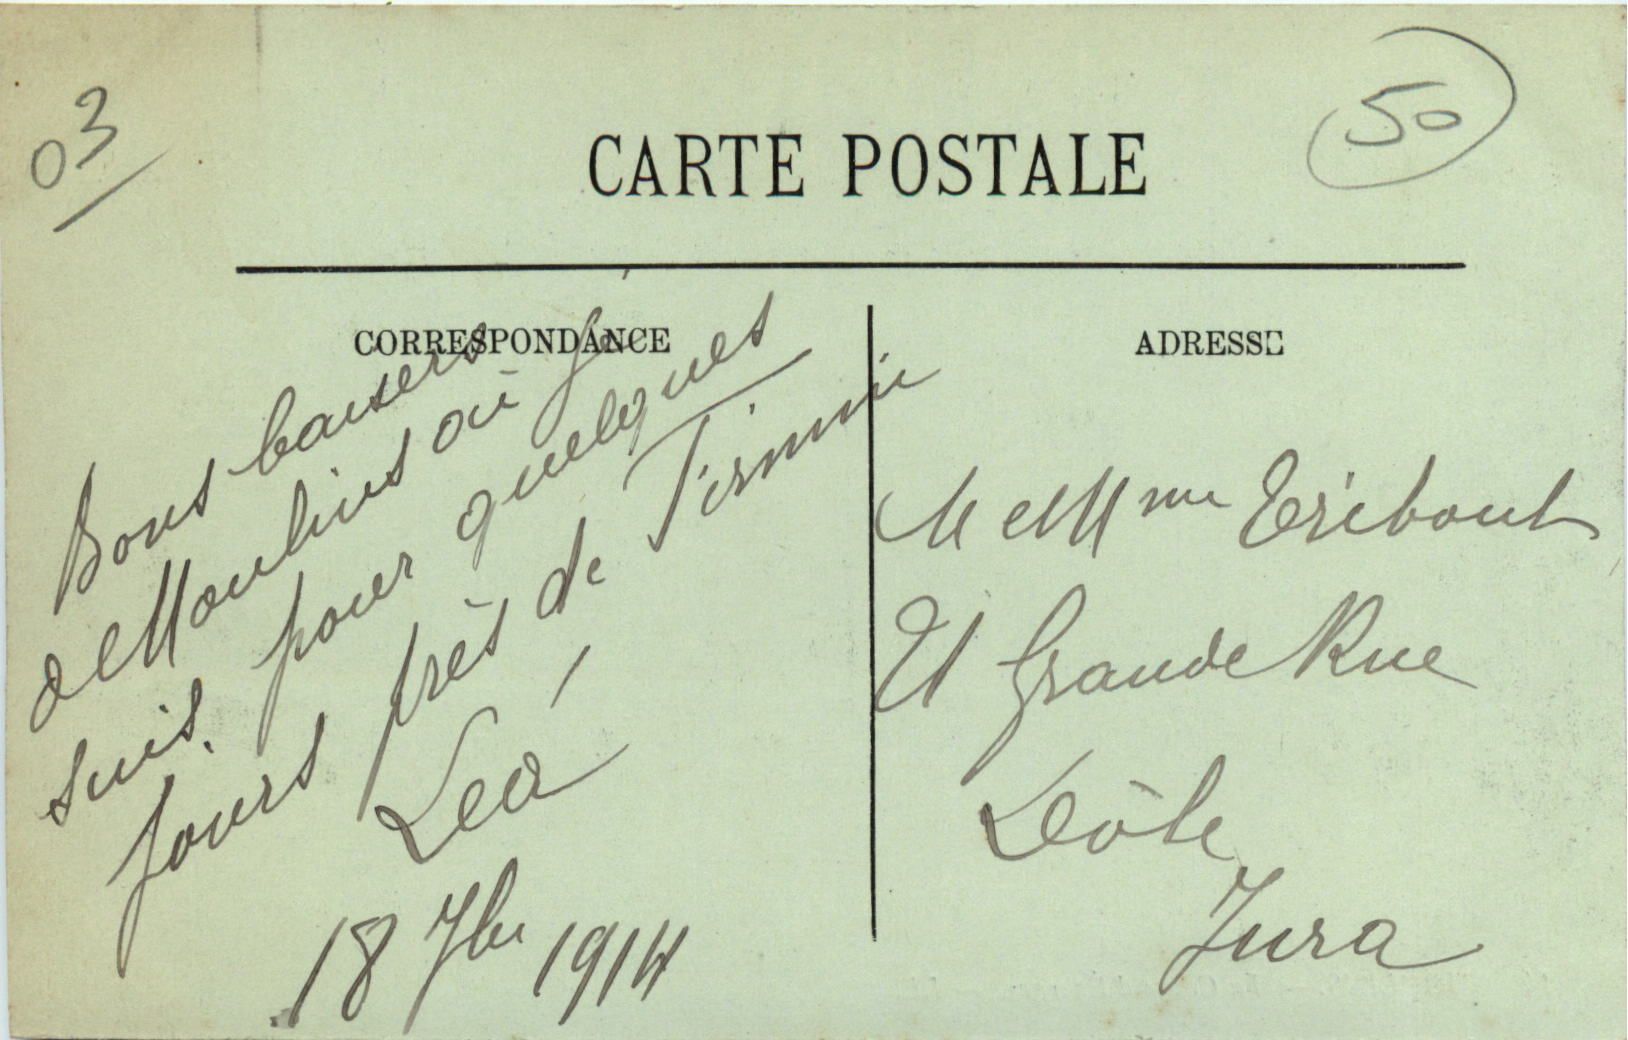 03
50
CARTE POSTALE
CORRESPONDANCE
Bons baisers
de Moulins où je
suis pour quelques
jours près de Firmin
Léa
18 7bre 1914
ADRESSE
M et Mme
Grande Rue
Dôle
Jura